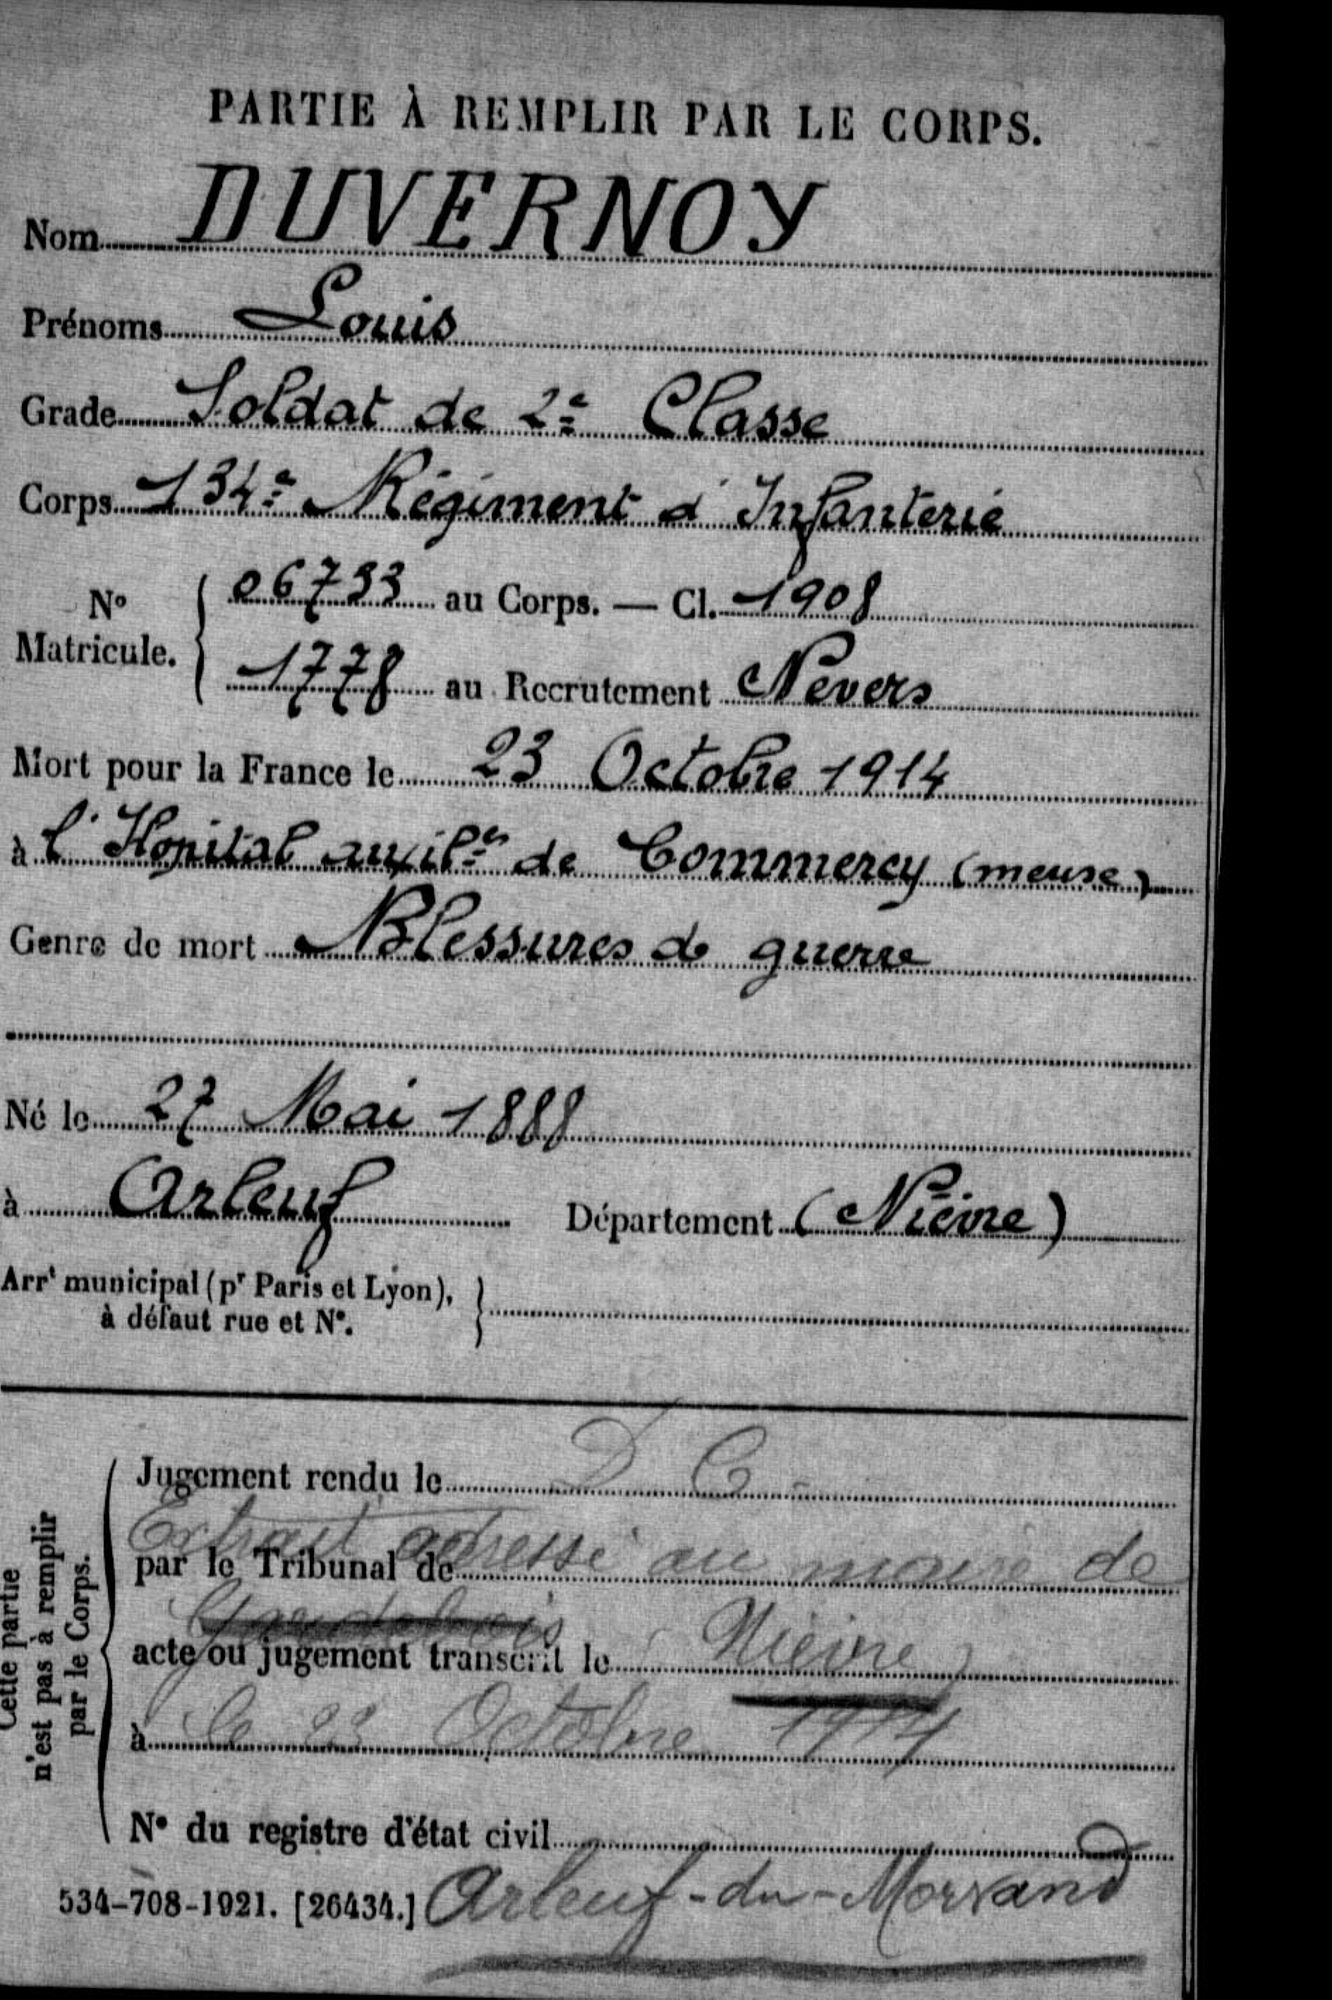 PARTIE À REMPLIR PAR LE CORPS.
Nom DUVERNOY
Prénoms Louis
Grade Soldat de 2e Classe
Corps 134e Régiment d'Infanterie
No Matricule. { 06733 au Corps. — Cl. 1908
1778 au Recrutement Nevers
Mort pour la France le 23 Octobre 1914
à l'Hopital auxilre de Commercy (meuse)
Genre de mort Blessures de guerre
Né le 27 Mai 1888
à Arleuf Département (Nièvre)
Arrt municipal (pr Paris et Lyon),
à défaut rue et No. }
Cette partie
n'est pas à remplir
par le Corps.
Jugement rendu le D C -
Extrait adressé au maire de
par le Tribunal de
acte ou jugement transcrit le (Nièvre)
à le 23 Octobre 1914
No du registre d'état civil
534-708-1921. [26434.] Arleuf-du-Morvand